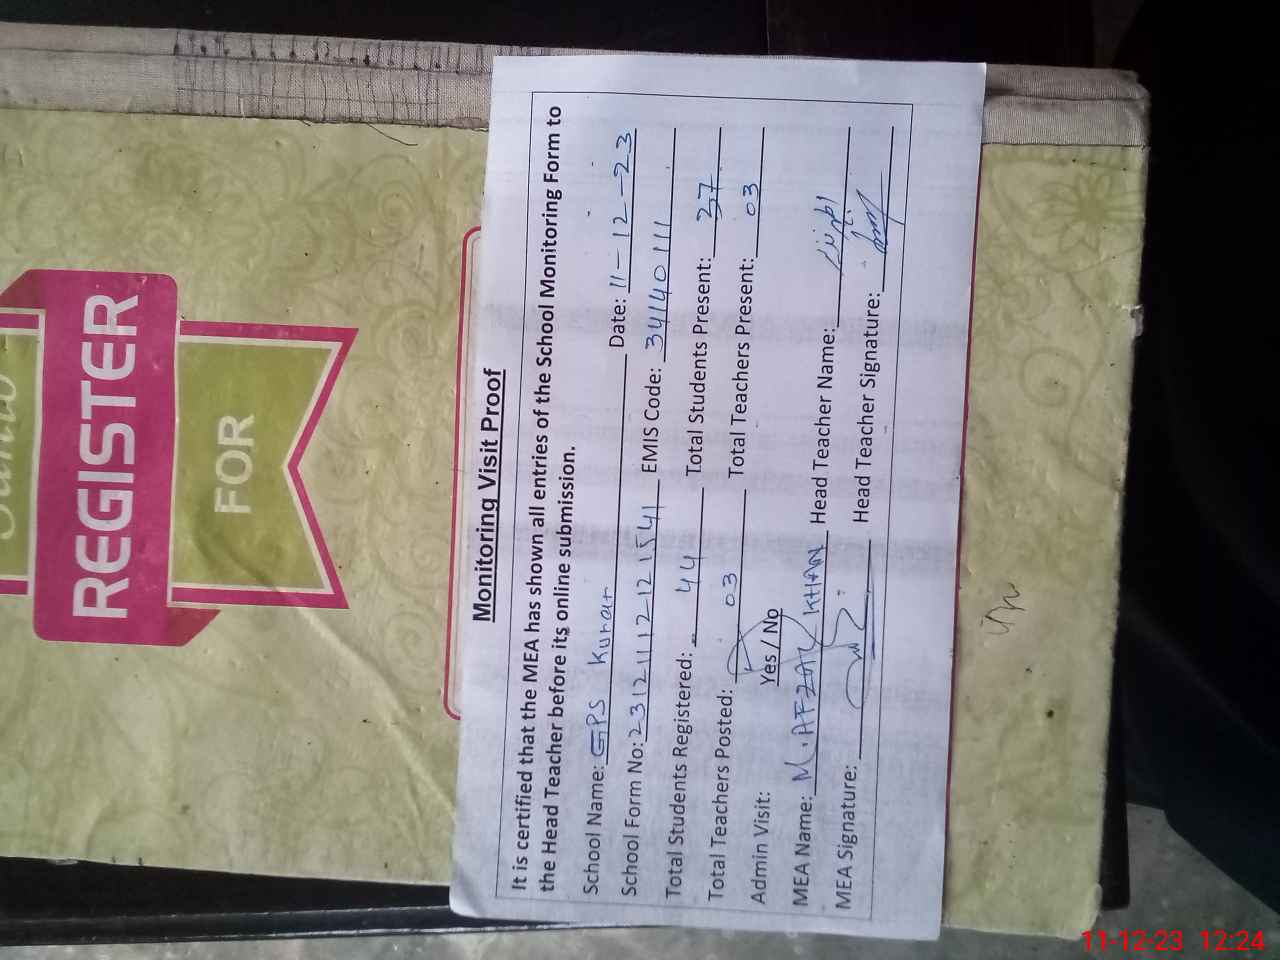 REGISTER
FOR
Monitoring Visit Proof
It is certified that the MEA has shown all entries of the School Monitoring Form to
the Head Teacher before its online submission.
School Name: GPS Kurar Date: 11-12-23
School Form No: 23121112121541 EMIS Code: 34140111
Total Students Registered: 44 Total Students Present: 37
Total Teachers Posted: 03 Total Teachers Present: 03
Admin Visit: Yes / No
MEA Name: M. AFZAL KHAN Head Teacher Name:
MEA Signature: Head Teacher Signature:
11-12-23 12:24